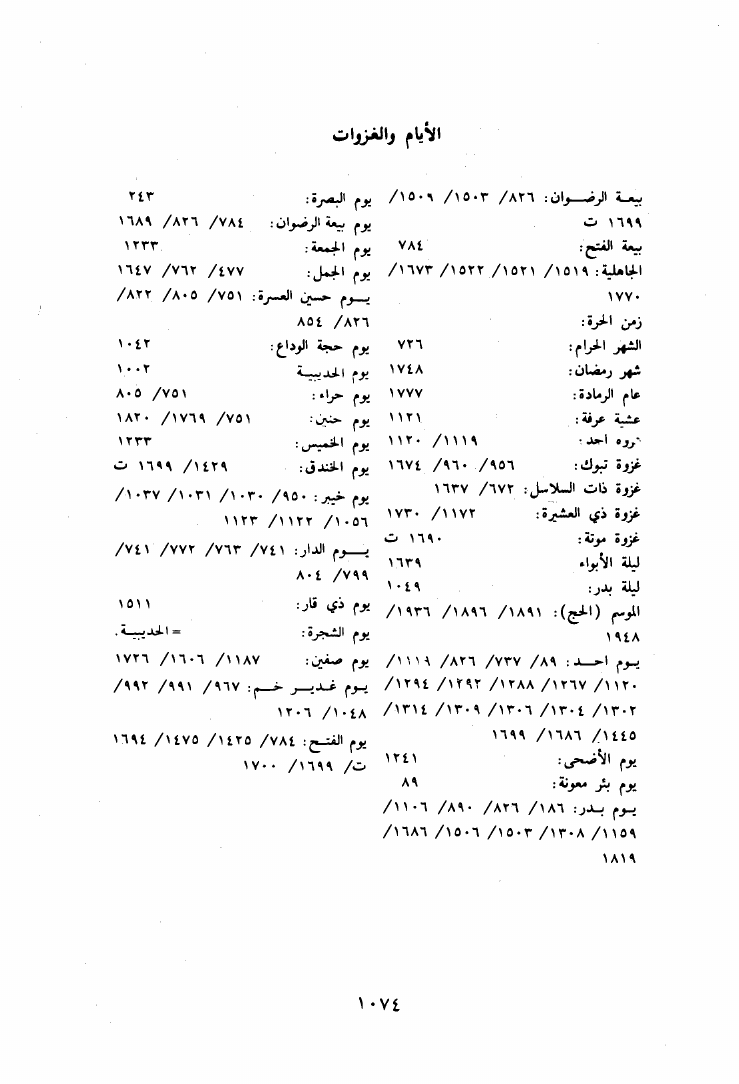 الأيام والغزوات
بيعة الرضوان: ٨٢٦/ ١٥٠٣/ ١٥٠٩/
١٦٩٩ ت
بيعة الفتح: ٧٨٤
الجاهلية: ١٥١٩/ ١٥٢١/ ١٥٢٢/ ١٦٧٣/
١٧٧٠
زمن الحرة:
الشهر الحرام: ٧٢٦
شهر رمضان: ١٧٤٨
عام الرمادة: ١٧٧٧
عشية عرفة: ١١٢١
احد: ١١١٩/ ١١٢٠
غزوة تبوك: ٩٥٦/ ٩٦٠/ ١٦٧٤
غزوة ذات السلاسل: ٦٧٢/ ١٦٣٧
غزوة ذي العشيرة: ١١٧٢/ ١٧٣٠
غزوة موتة: ١٦٩٠ ت
ليلة الأبواء ١٦٣٩
ليلة بدر: ١٠٤٩
الموسم (الحج): ١٨٩١/ ١٨٩٦/ ١٩٣٦/
١٩٤٨
يوم احد: ٨٩/ ٧٣٧/ ٨٢٦/ ١١١٩/
١١٢٠/ ١٢٦٧/ ١٢٨٨/ ١٢٩٢/ ١٢٩٤/
١٣٠٢/ ١٣٠٤/ ١٣٠٦/ ١٣٠٩/ ١٣١٤/
١٤٤٥/ ١٦٨٦/ ١٦٩٩
يوم الأضحى: ١٢٤١
يوم بئر معونة: ٨٩
يوم بدر: ١٨٦/ ٨٢٦/ ٨٩٠/ ١١٠٦/
١١٥٩/ ١٣٠٨/ ١٥٠٣/ ١٥٠٦/ ١٦٨٦/
١٨١٩
يوم البصرة: ٢٤٣
يوم بيعة الرضوان: ٧٨٤/ ٨٢٦/ ١٦٨٩
يوم الجمعة: ١٢٣٣
يوم الجمل: ٤٧٧/ ٧٦٢/ ١٦٤٧
يوم حسين العسرة: ٧٥١/ ٨٠٥/ ٨٢٢/
٨٢٦/ ٨٥٤
يوم حجة الوداع: ١٠٤٢
يوم الحديبية ١٠٠٢
يوم حراء: ٧٥١/ ٨٠٥
يوم حنين: ٧٥١/ ١٧٦٩/ ١٨٢٠
يوم الخميس: ١٢٣٣
يوم الخندق: ١٤٢٩/ ١٦٩٩ ت
يوم خيبر: ٩٥٠/ ١٠٣٠/ ١٠٣١/ ١٠٣٧/
١٠٥٦/ ١١٢٢/ ١١٢٣
يوم الدار: ٧٤١/ ٧٦٣/ ٧٧٢/ ٧٤١/
٧٩٩/ ٨٠٤
يوم ذي قار: ١٥١١
يوم الشجرة: =الحديبية.
يوم صفين: ١١٨٧/ ١٦٠٦/ ١٧٢٦
يوم غدير خم: ٩٦٧/ ٩٩١/ ٩٩٢/
١٠٤٨/ ١٢٠٦
يوم الفتح: ٧٨٤/ ١٤٢٥/ ١٤٧٥/ ١٦٩٤
ت/ ١٦٩٩/ ١٧٠٠
١٠٧٤